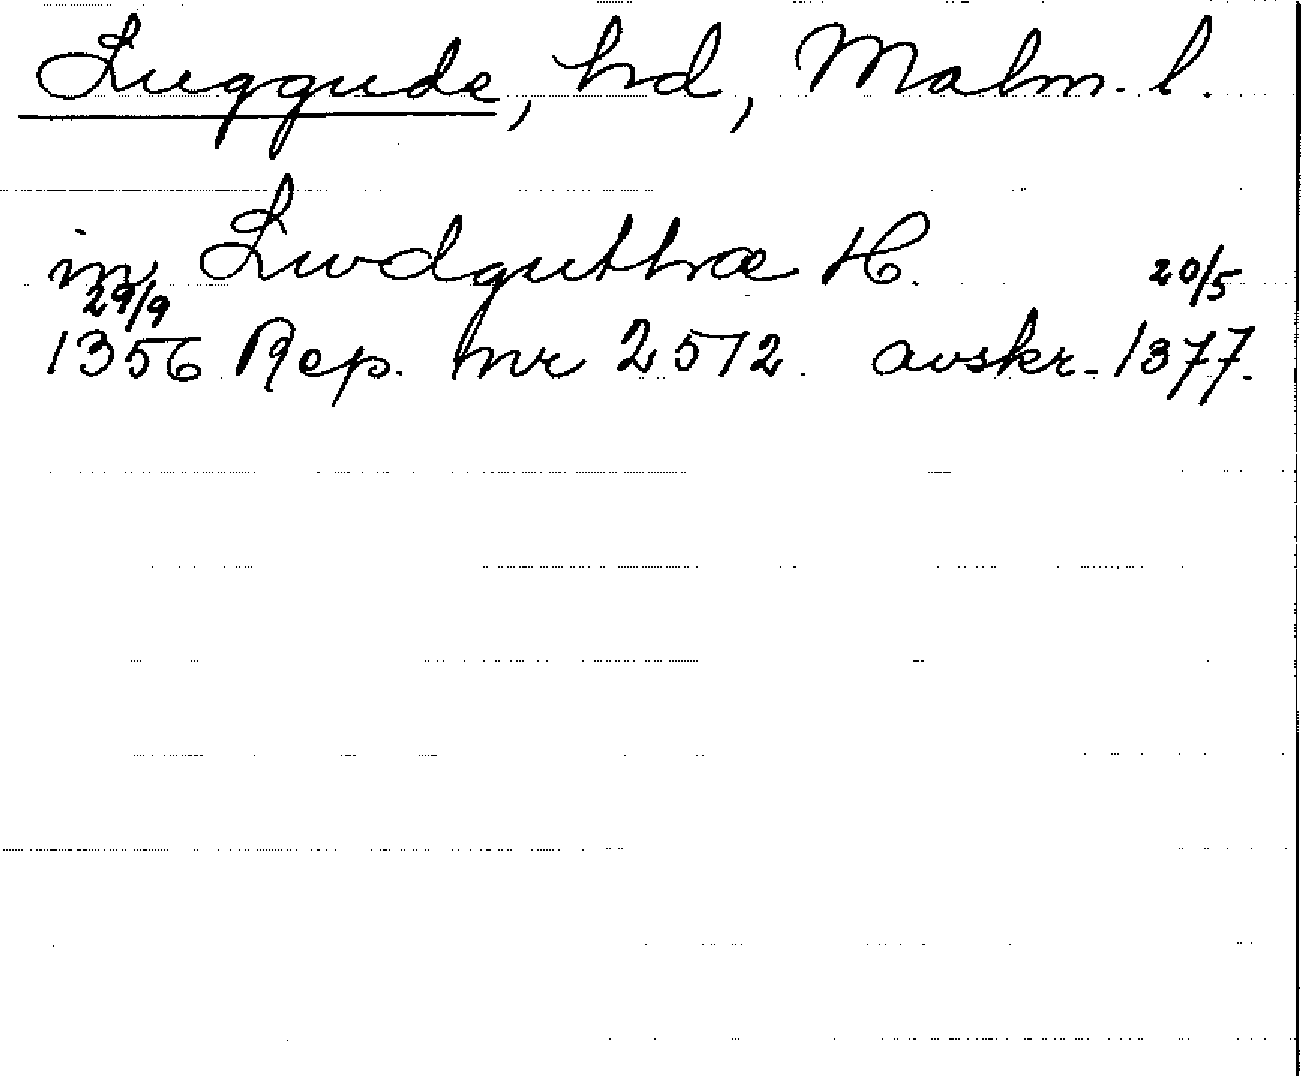 Luggude, hd, Malm. l.
in Lwdguthræ H.
29/9 20/5
1356 Rep. nr 2512. avskr. 1377.